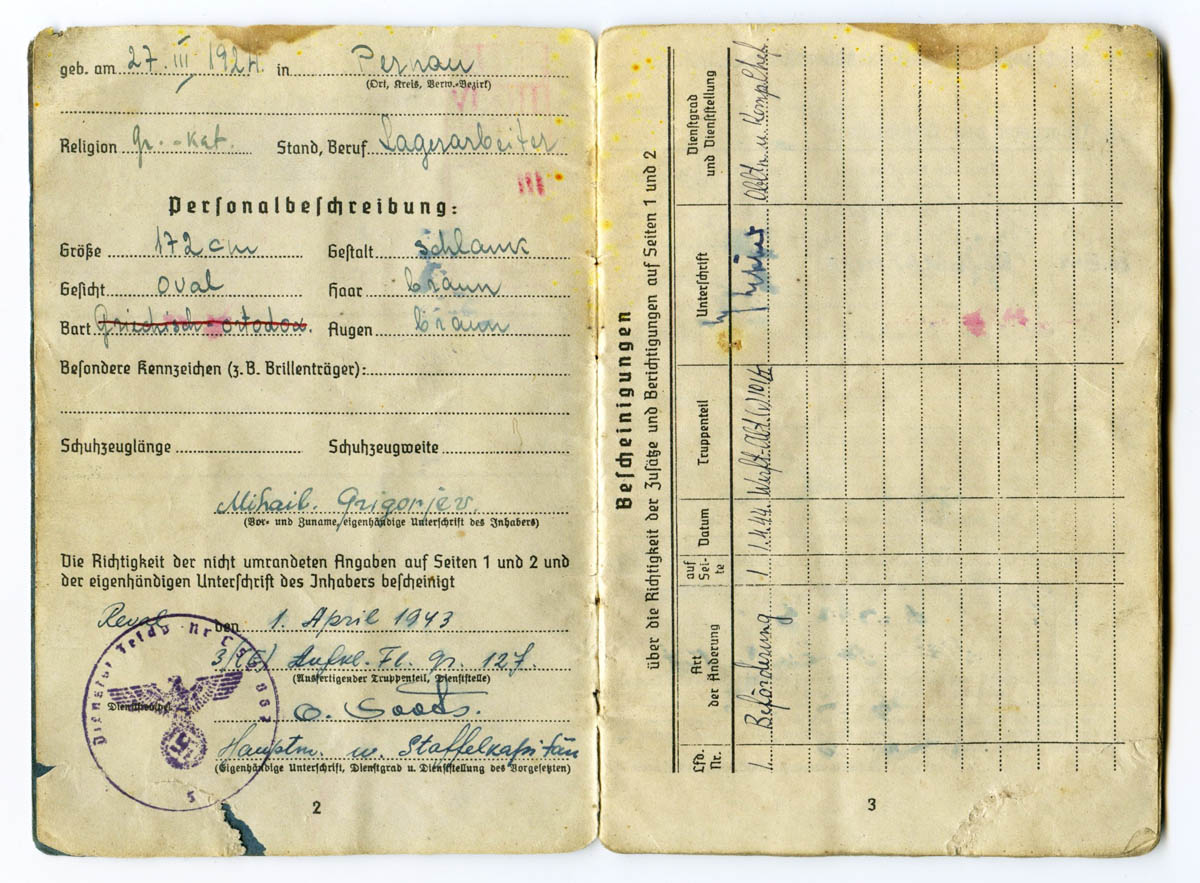 geb. am 27. III. 1924. in Pernau
(Ort, Kreis, Verw.-Bezirk)
Religion gr.-kat. Stand, Beruf Lagerarbeiter
III
Personalbeschreibung:
Größe 172 cm Gestalt schlank
Gesicht oval Haar braun
Bart Griechisch-ortodox. Augen braun
Besondere Kennzeichen (z. B. Brillenträger):
Schuhzeuglänge Schuhzeugweite
Mihail. Grigorjev.
(Vor- und Zuname, eigenhändige Unterschrift des Inhabers)
Die Richtigkeit der nicht umrandeten Angaben auf Seiten 1 und 2 und
der eigenhändigen Unterschrift des Inhabers bescheinigt
Reval den 1. April 1943
3/(F) Aufkl. Fl. Gr. 127.
(Ausfertigender Truppenteil, Dienststelle)
Dienstsiegel
Hauptm. u. Staffelkapitän
(Eigenhändige Unterschrift, Dienstgrad u. Dienststellung des Vorgesetzten)
2
Bescheinigungen
über die Richtigkeit der Zusätze und Berichtigungen auf Seiten 1 und 2
Lfd. Nr.
Art der Änderung
auf Sei- te
Datum
Truppenteil
Unterschrift
Dienstgrad und Dienststellung
1. Beförderung 1 1.4.44. Werft-Abt. Obltn. u. Komp. Chef.
3